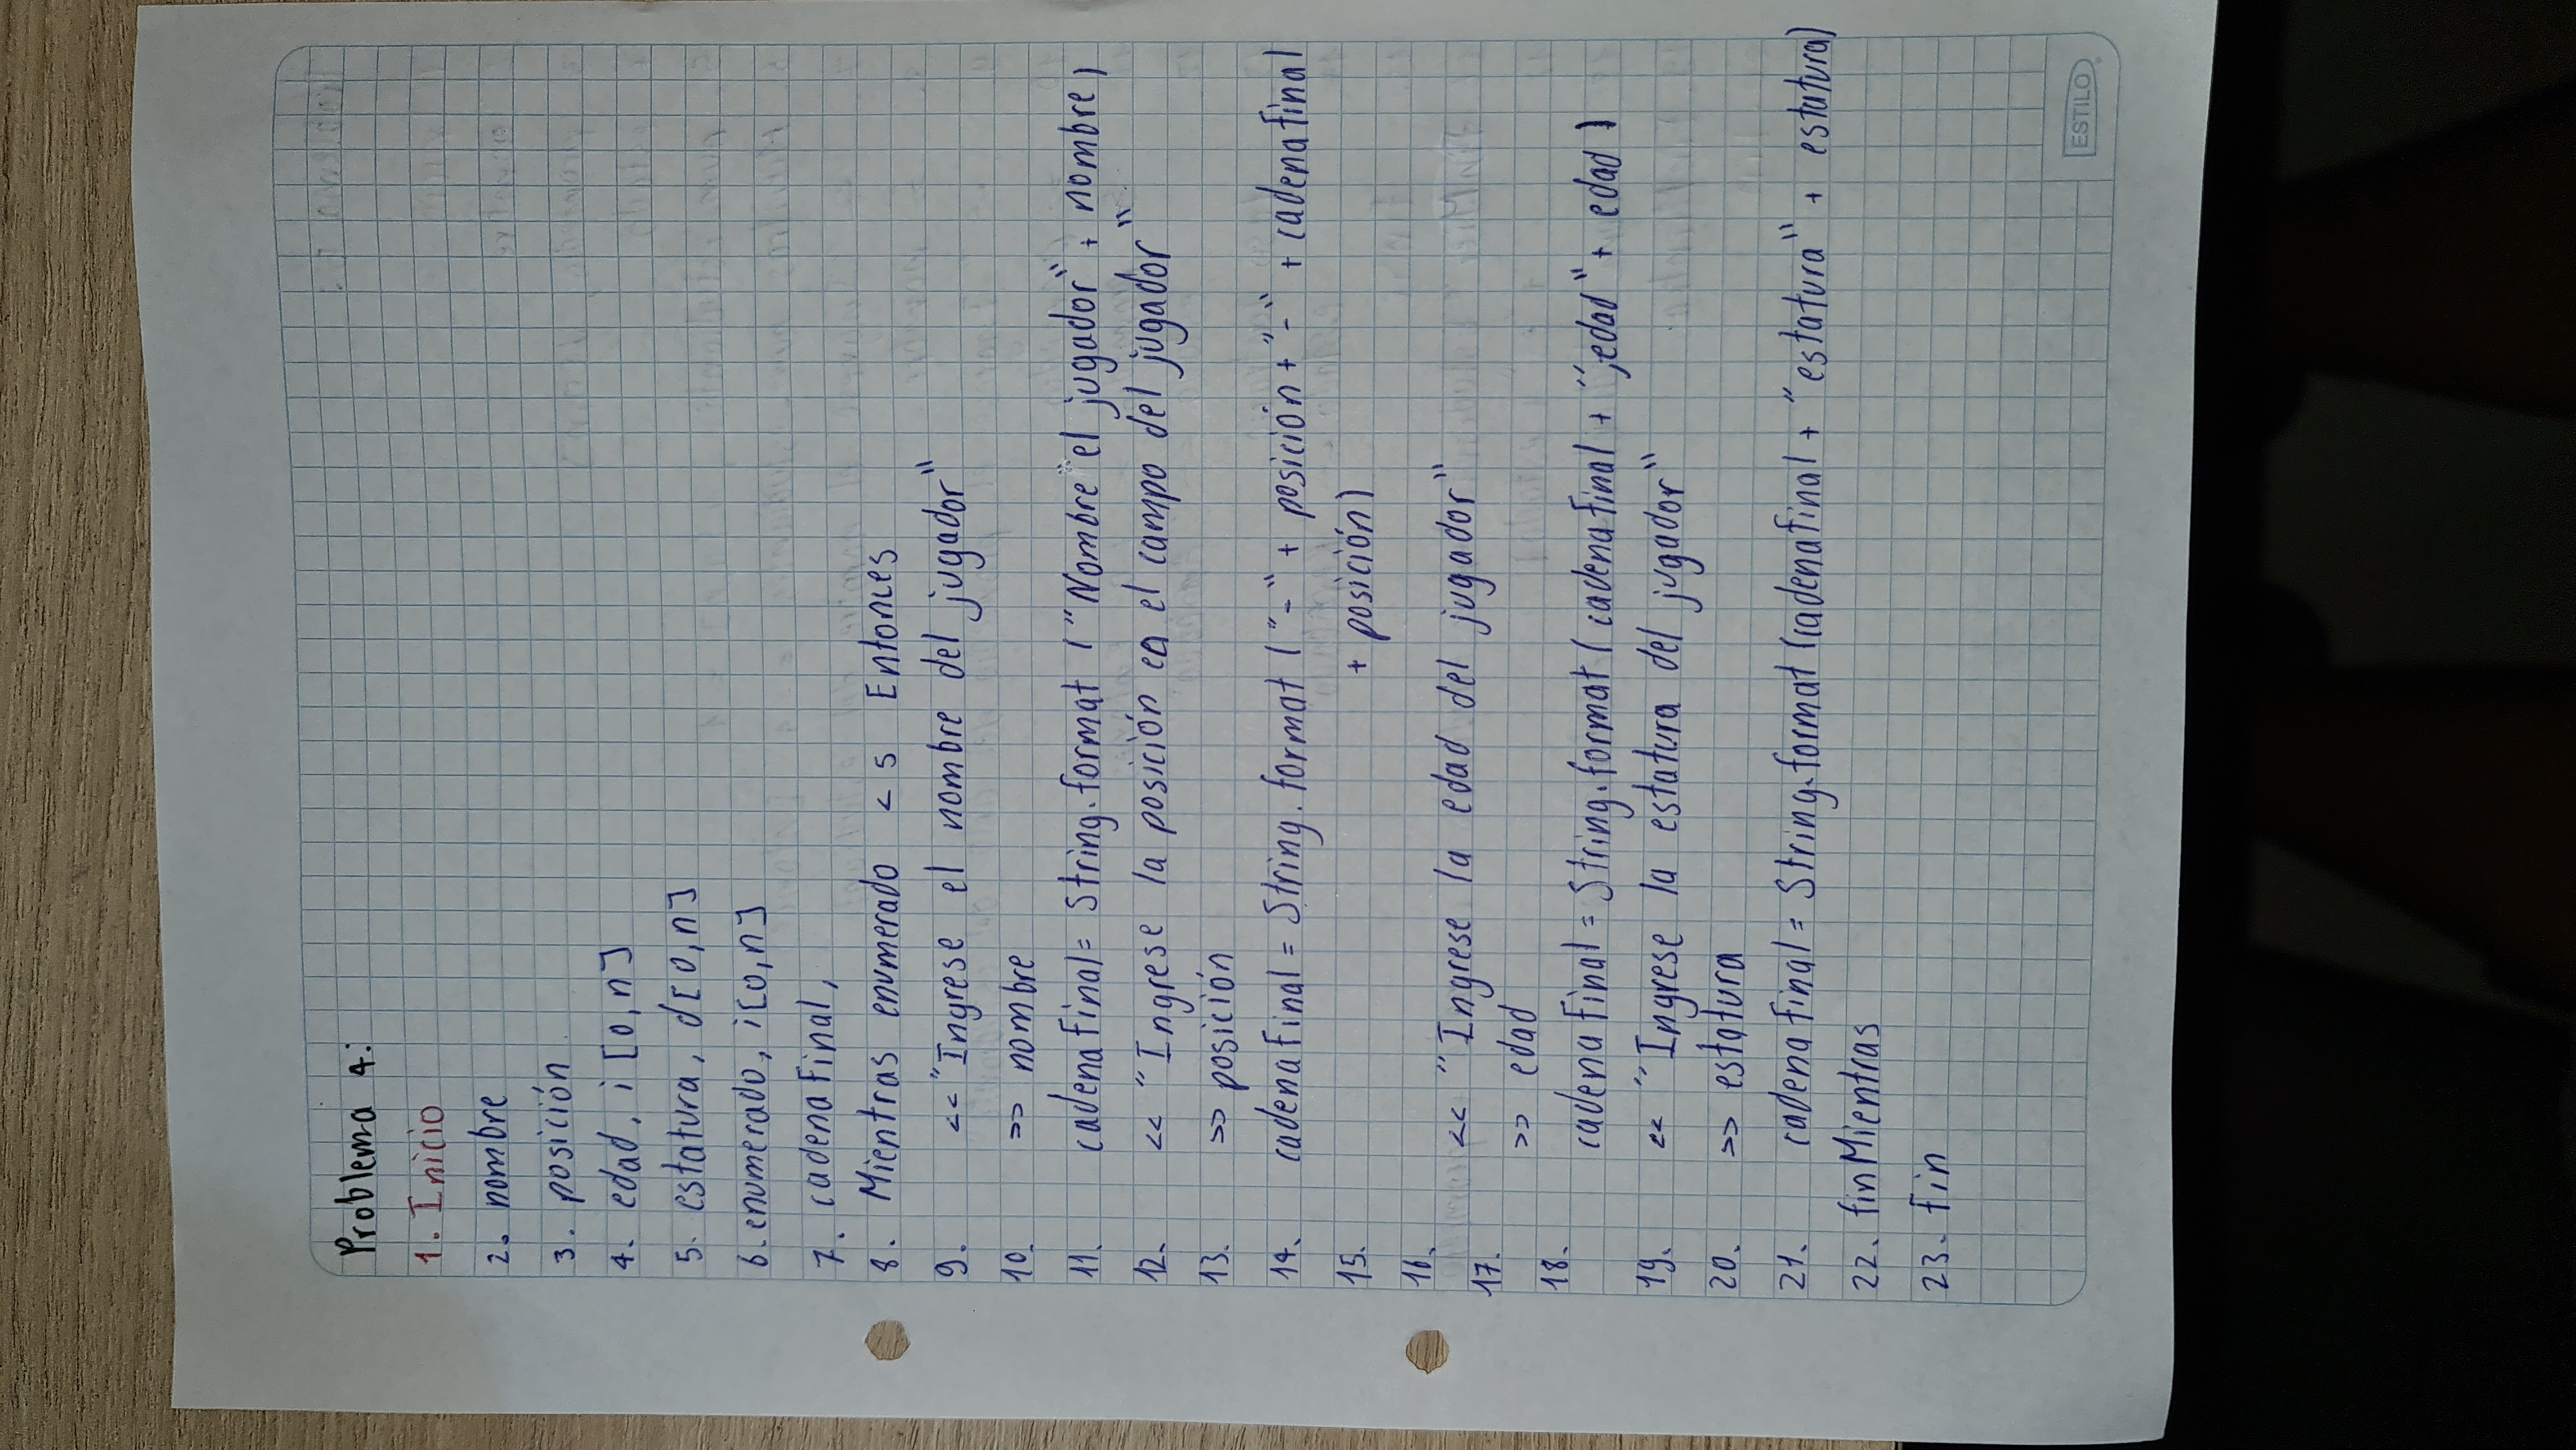 Problema 4:
1. Inicio
2. nombre
3. posición
4. edad, i [0,n]
5. estatura, d[0,n]
6. enumerado, i[0,n]
7. cadena Final,
8. Mientras enumerado < 5 Entonces
9. << "Ingrese el nombre del jugador"
10. >> nombre
11. cadena final= String.format ("Nombre "el jugador", + nombre)
12. << "Ingrese la posición en el campo del jugador"
13. >> posición
14. cadena Final = String.format ("-" + posición + "-" + cadena final
15. + posición)
16. << "Ingrese la edad del jugador"
17. >> edad
18. cadena final = String.format (cadena final + ";edad" + edad)
19. << "Ingrese la estatura del jugador"
20. >> estatura
21. cadena final = String.format (cadena final + "estatura" + estatura)
22. finMientras
23. fin
ESTILO